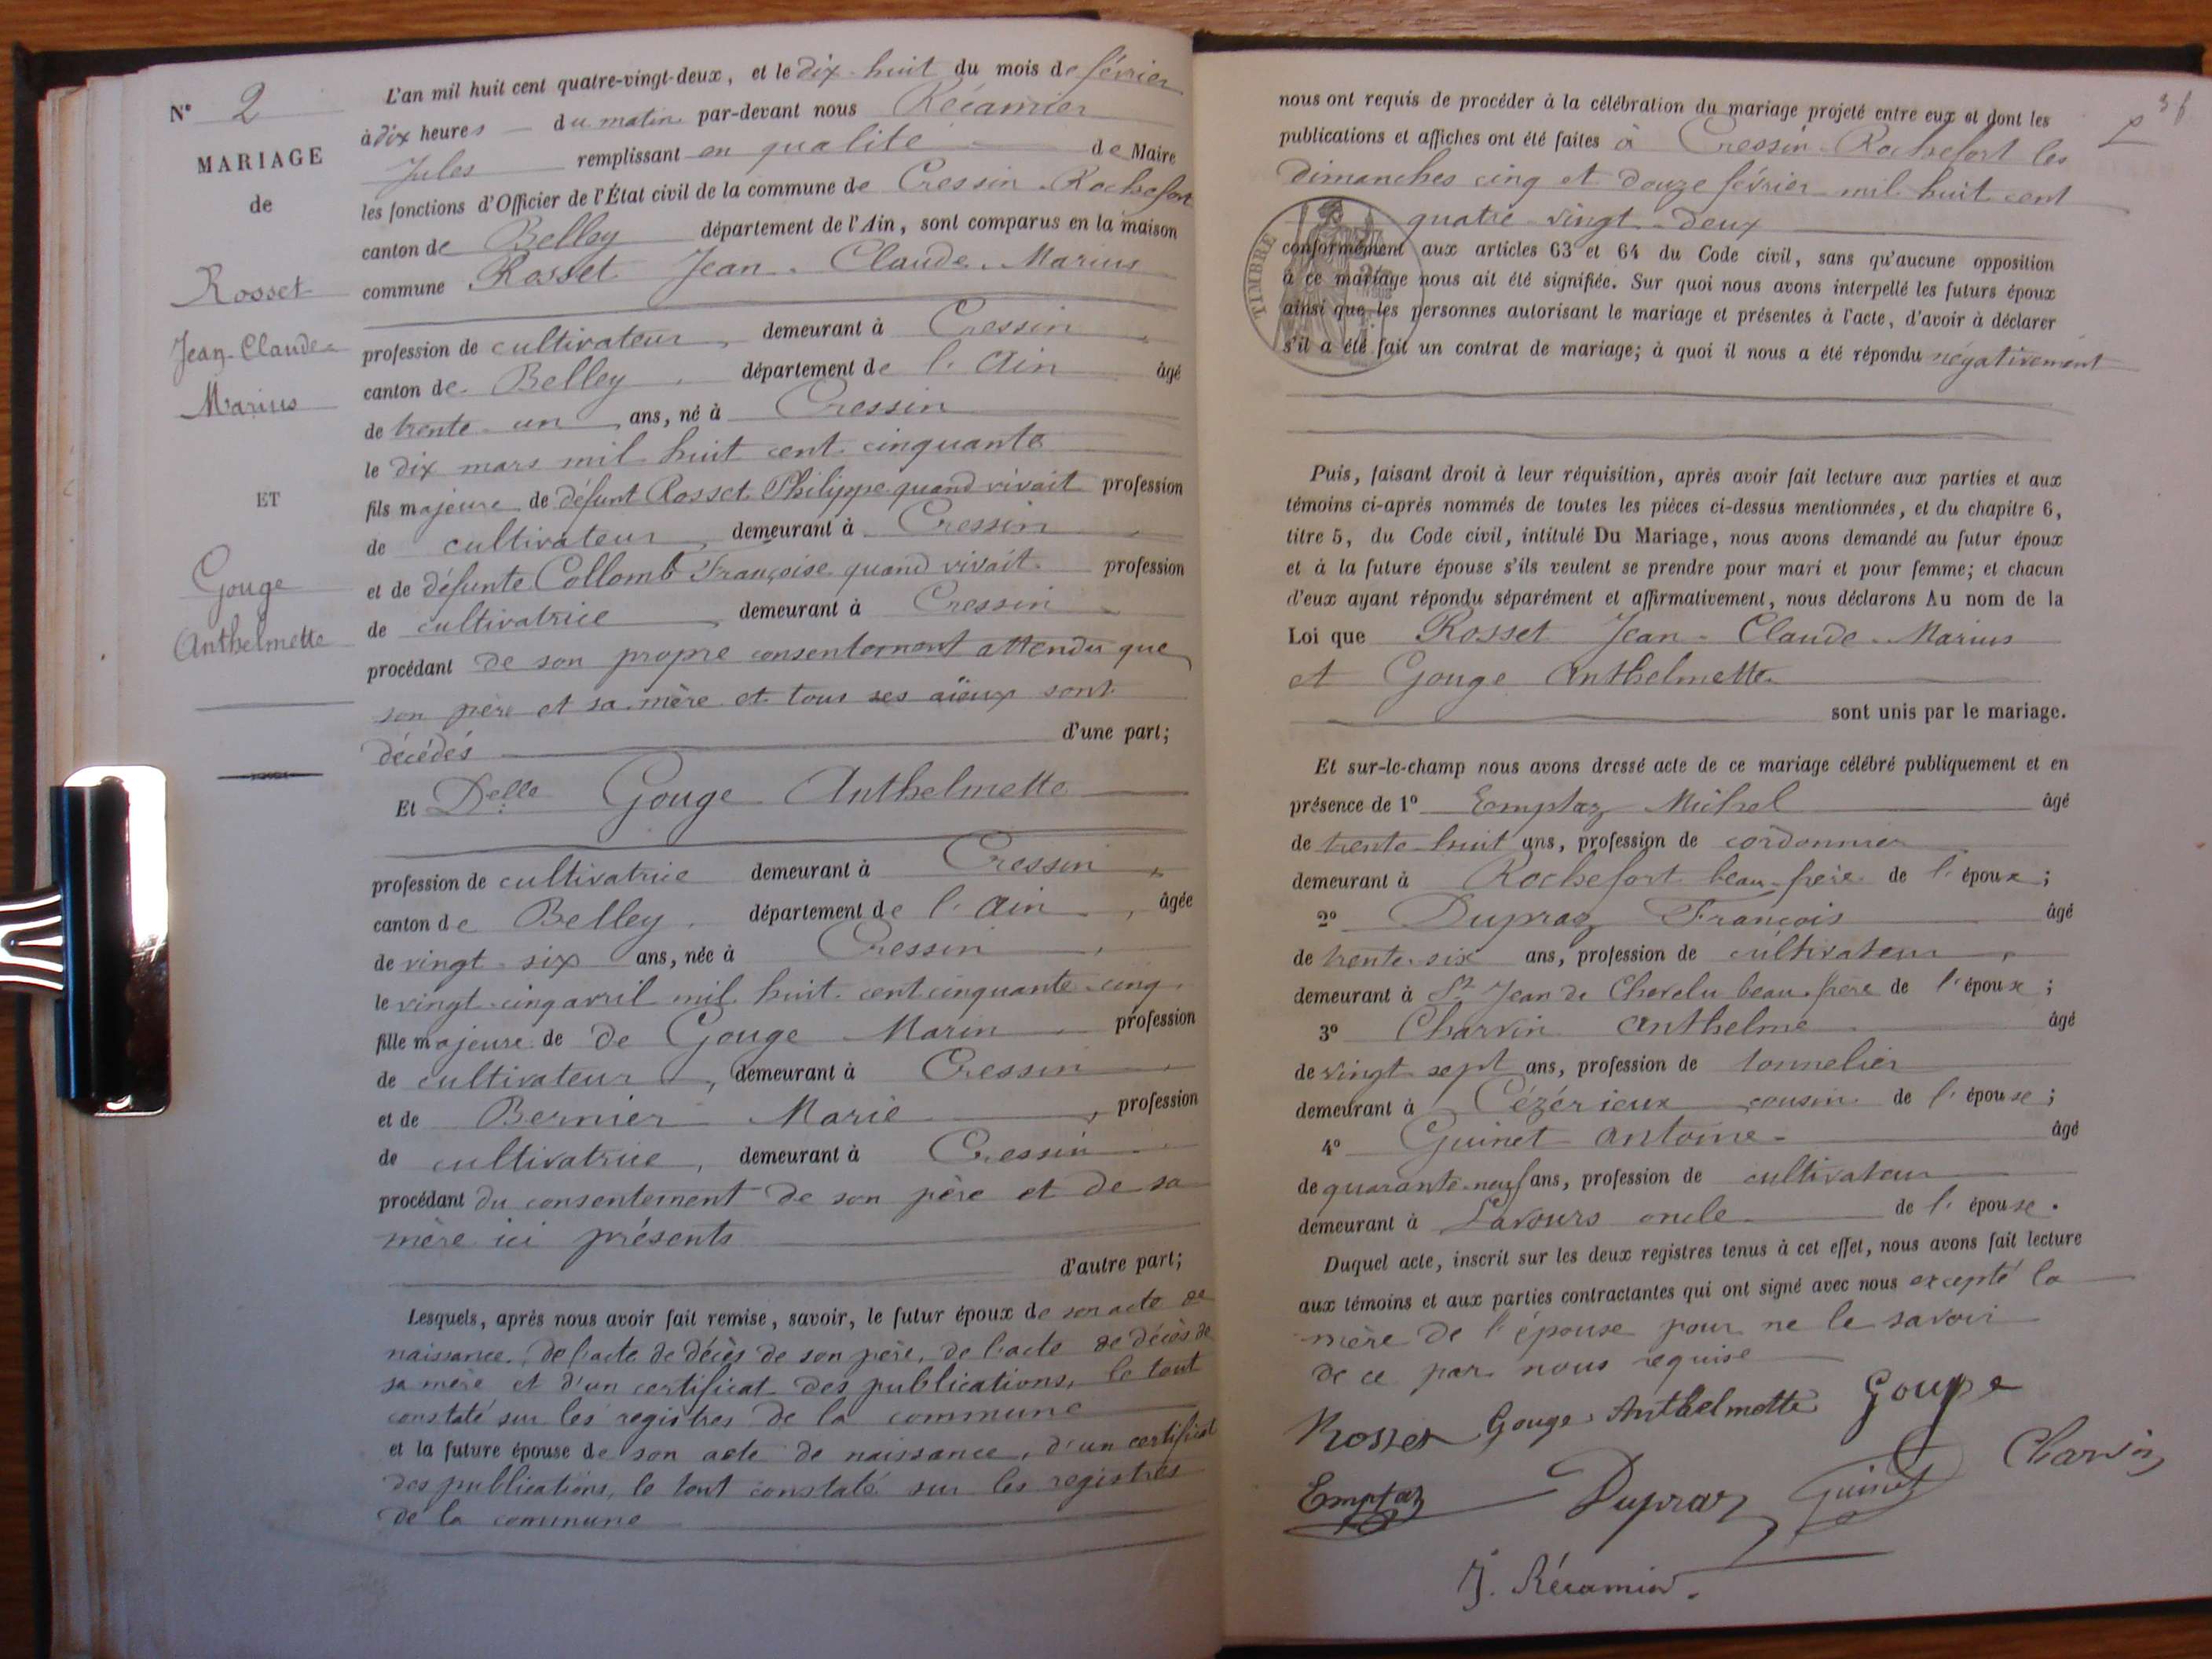 N° 2
MARIAGE
de
Rosset
Jean-Claude
Marius
ET
Gouge
Anthelmette
L'an mil huit cent quatre-vingt-deux, et le dix-huit du mois de février
à dix heures du matin par-devant nous Récamier
Jules remplissant en qualité de Maire
les fonctions d'Officier de l'État civil de la commune de Cressin-Rochefort
canton de Belley département de l'Ain, sont comparus en la maison
commune Rosset Jean-Claude-Marius
profession de cultivateur, demeurant à Cressin,
canton de Belley, département de l'Ain âgé
de trente-un ans, né à Cressin
le dix mars mil huit cent cinquante
fils majeure de défunt Rosset Philippe quand vivait profession
de cultivateur, demeurant à Cressin
et de défunte Collomb Françoise quand vivait profession
de cultivatrice demeurant à Cressin
procédant de son propre consentement attendu que
son père et sa mère et tous ses aïeux sont
décédés d'une part;
Et Delle Gouge Anthelmette
profession de cultivatrice demeurant à Cressin,
canton de Belley, département de l'Ain, âgée
de vingt-six ans, née à Cressin,
le vingt-cinq avril mil huit cent cinquante-cinq,
fille majeure de de Gouge Marin profession
de cultivateur, demeurant à Cressin
et de Bernier Marie, profession
de cultivatrice, demeurant à Cressin
procédant du consentement de son père et de sa
mère ici présents
d'autre part;
Lesquels, après nous avoir fait remise, savoir, le futur époux de son acte de
naissance, de l'acte de décès de son père, de l'acte de décès de
sa mère et d'un certificat des publications, le tout
constaté sur les registres de la commune
et la future épouse de son acte de naissance, d'un certificat
des publications, le tout constaté sur les registres
de la commune
nous ont requis de procéder à la célébration du mariage projeté entre eux et dont les
publications et affiches ont été faites à Cressin-Rochefort les
dimanches cinq et douze février mil huit cent
quatre-vingt-deux
TIMBRE
conformément aux articles 63 et 64 du Code civil, sans qu'aucune opposition
à ce mariage nous ait été signifiée. Sur quoi nous avons interpellé les futurs époux
ainsi que les personnes autorisant le mariage et présentes à l'acte, d'avoir à déclarer
s'il a été fait un contrat de mariage; à quoi il nous a été répondu négativement
Puis, faisant droit à leur réquisition, après avoir fait lecture aux parties et aux
témoins ci-après nommés de toutes les pièces ci-dessus mentionnées, et du chapitre 6,
titre 5, du Code civil, intitulé Du Mariage, nous avons demandé au futur époux
et à la future épouse s'ils veulent se prendre pour mari et pour femme; et chacun
d'eux ayant répondu séparément et affirmativement, nous déclarons Au nom de la
Loi que Rosset Jean-Claude-Marius
et Gouge Anthelmette
sont unis par le mariage.
Et sur-le-champ nous avons dressé acte de ce mariage célébré publiquement et en
présence de 1° Emptaz Michel âgé
de trente-huit ans, profession de cordonnier
demeurant à Rochefort beau-frère de l'époux;
2° Dupraz François âgé
de trente-six ans, profession de cultivateur,
demeurant à St Jean de Chevelu beau-frère de l'époux;
3° Charvin Anthelme âgé
de vingt sept ans, profession de tonnelier
demeurant à Cézérieux cousin de l'épouse;
4° Guinet Antoine âgé
de quarante-neuf ans, profession de cultivateur
demeurant à Lavours oncle de l'épouse.
Duquel acte, inscrit sur les deux registres tenus à cet effet, nous avons fait lecture
aux témoins et aux parties contractantes qui ont signé avec nous excepté la
mère de l'épouse pour ne le savoir
de ce par nous requise
Rosset Gouge Anthelmette Gouge
Emptaz Dupraz Guinet Charvin
J. Récamier.